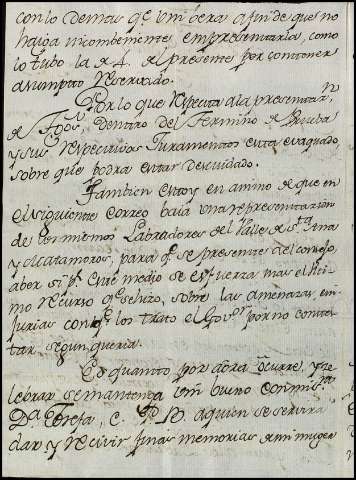 con lo demas qe. vm. bera afin de que no
haiga incombeniente en presentarla, como
lo tubo la de 4. del presente por contener
asumpto reservado.
Por lo que respecta ala presentan.
de Ttgos. dentro del termino de Prueba
y sus respectivos Juramentos esta evaquado,
sobre que podra estar descuidado.
Tambien estoy en animo de que en
el siguiente correo baia una representacion
de los mismos Labradores del Valle de Sta. Ana
y Alcatamoros, para qe. se presente al consejo,
aber si pr. este medio se esfuerza mas el Ulti
mo recurso qe. se hizo, sobre las amenazas, in
jurias con qe. los trato el Govor. por no contes
tar segun queria.
Es quanto por aora ocurre, y ce
lebrare se mantenga vm. bueno con mi Sa.
Da. Teresa, a quien se servira
dar y recivir finas memorias de mi muger